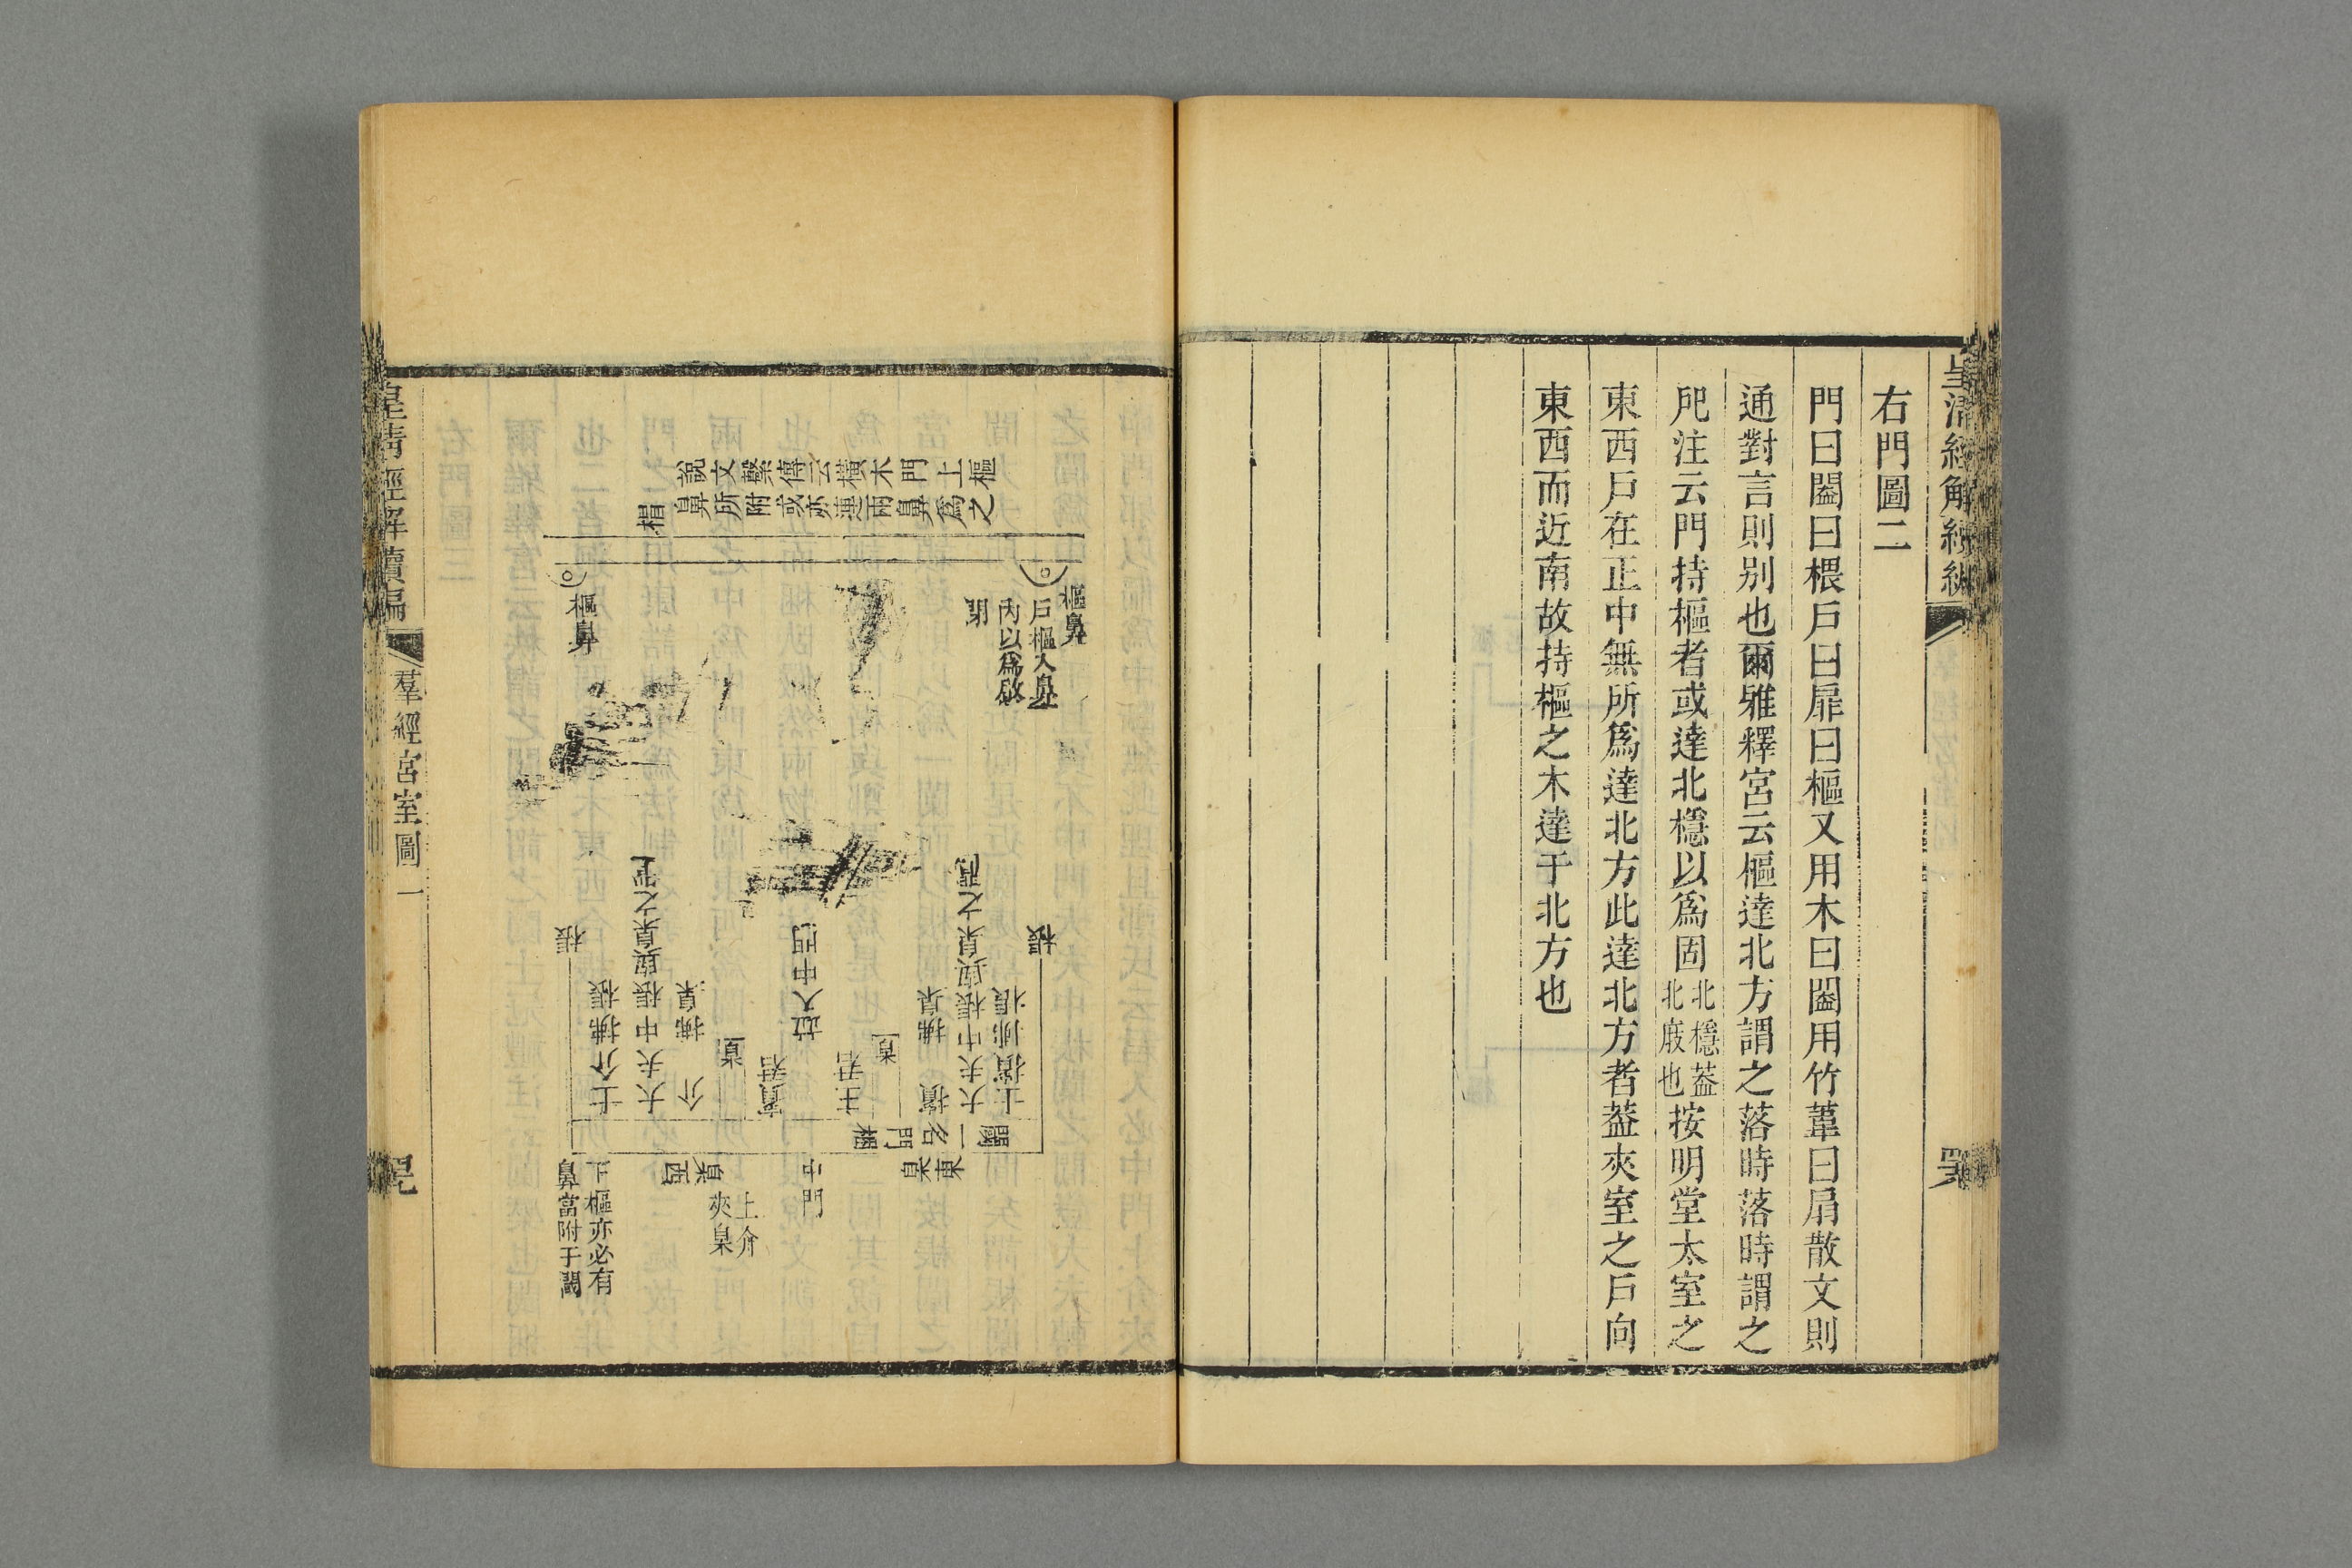 右門圖二
門曰闔曰椳戶曰扉曰樞又用木曰闔用竹葦曰扇散文則
通對言則别也爾雅釋宮云樞達北方謂之落時落時謂之
戺注云門持樞者或達北檼以爲固北檼葢北戺也按明堂太室之
東西戶在正中無所爲達北方此達北方者葢夾室之戶向
東西而近南故持樞之木達于北方也
說文繫傳云橫木門上樞
鼻所附或亦連兩鼻爲之
樞鼻
戶樞入鼻
内以爲啟
閉
樞鼻
棖
士擯拂棖
大夫中棖與臬之間
擯拂臬
主君
並入中門
賓君
介拂臬
大夫中棖與臬之間
士介拂棖
棖
闑一名門橛
東臬
中門
上介
夾臬
臬西
下樞亦必有
鼻當附于閾
皇清經解續編
羣經宮室圖一